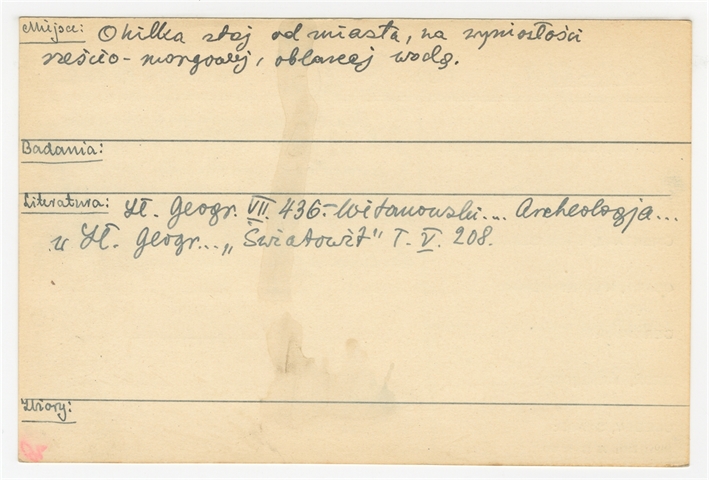 Miejsce: O kilka staj od miasta, na wyniosłości
sześcio-morgowej, oblanej wodą.
Badania:
Literatura: Sł. Geogr. VII. 436.- Witanowski... Archeologja...
w Sł. Geogr... „Światowit" T. V. 208.
Zbiory: